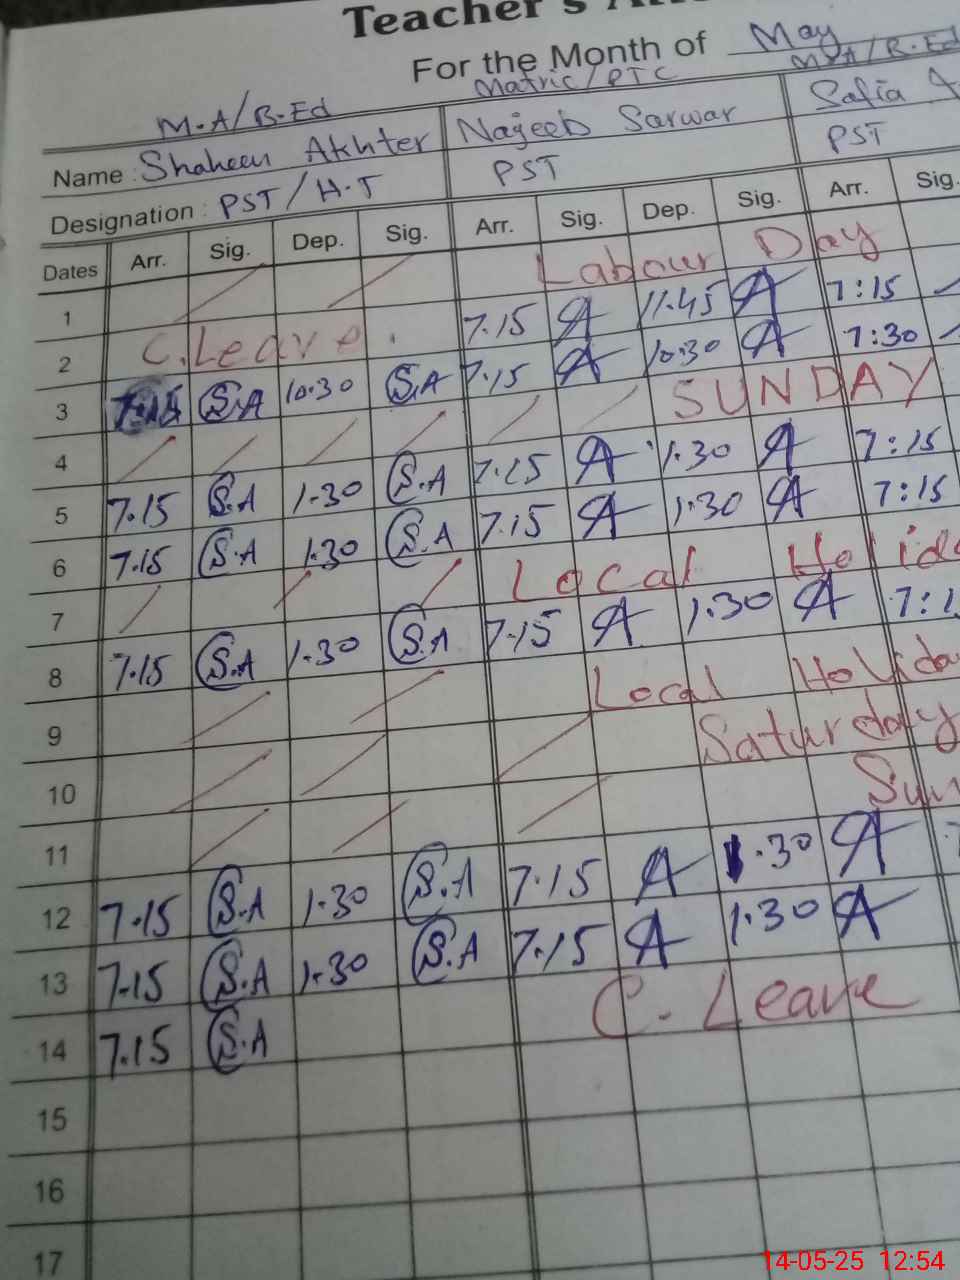 Teacher's
For the Month of May
M.A/B.Ed Matric/PTC M.A/B.Ed
Name : Shaheen Akhter Najeeb Sarwar Safia
Designation : PST/H.T PST PST
Dates Arr. Sig. Dep. Sig. Arr. Sig. Dep. Sig. Arr. Sig.
1 Labour Day
2 C.Leave. 7.15 A 11.45 A 7:15
3 7.15 S.A 10.30 S.A 7.15 A 10.30 A 7:30
4 SUNDAY
5 7.15 S.A 1.30 S.A 7.15 A 1.30 A 7:15
6 7.15 S.A 1.30 S.A 7.15 A 1.30 A 7:15
7 Local Holida
8 7.15 S.A 1.30 S.A 7.15 A 1.30 A 7:1
9 Local Holida
10 Saturday
11 Sun
12 7.15 S.A 1.30 S.A 7.15 A 1.30 A
13 7.15 S.A 1.30 S.A 7.15 A 1.30 A
14 7.15 S.A C. Leave
15
16
17
14-05-25 12:54